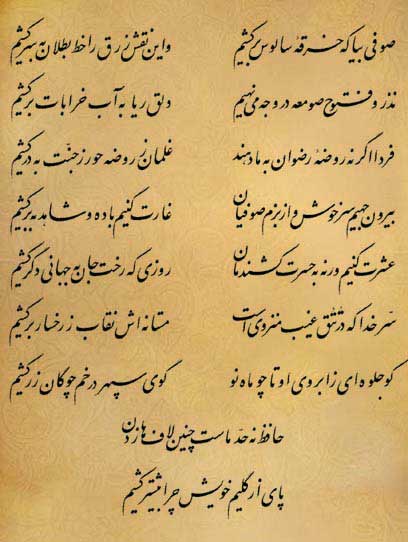 صوفی بیا که خرقهٔ سالوس برکشیم واین نقش زرق را خط بطلان به سر کشیم
نذر و فتوح صومعه در وجه می نهیم دلق ریا به آب خرابات برکشیم
فردا اگر نه روضهٔ رضوان به ما دهند غلمان ز روضه حور ز جنّت به در کشیم
بیرون جهیم سرخوش و از بزم صوفیان غارت کنیم باده و شاهد به بر کشیم
عشرت کنیم ورنه به حسرت کشندمان روزی که رخت جان به جهانی دگر کشیم
سرّ خدا که در تتق غیب منزوی است مستانه اش نقاب ز رخسار برکشیم
کو جلوه ای ز ابروی او تا چو ماه نو گوی سپهر در خم چوگان زر کشیم
حافظ نه حدّ ماست چنین لاف ها زدن
پای از گلیم خویش چرا بیشتر کشیم